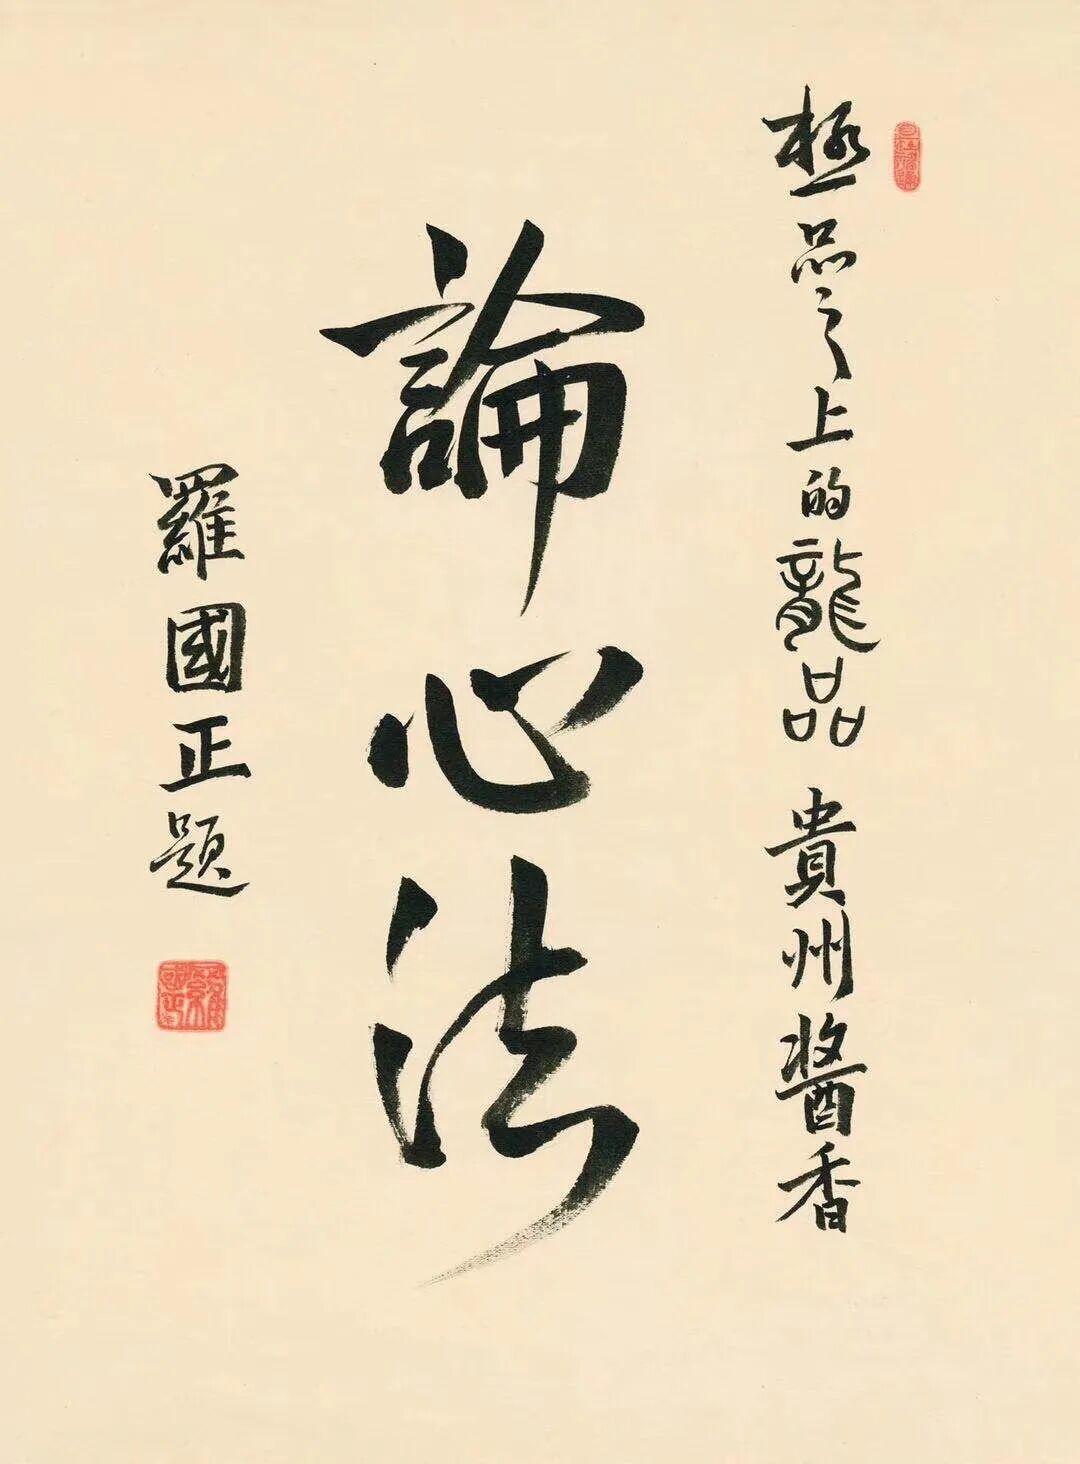 極品之上的龍品 貴州醬香
論心法
羅國正題